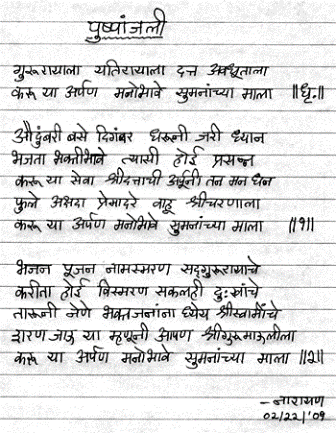 पुष्पांजली
गुरुरायाला यतिरायाला दत्त अवधूताला
करू या अर्पण मनोभावे सुमनांच्या माला ॥धृ.॥
औदुंबरी वसे दिगंबर धरूनी जरी ध्यान
भजता भक्तीभावे त्यासी होई प्रसन्न
करू या सेवा श्रीदत्ताची अर्पूनी तन मन धन
फुले अक्षदा प्रेमादरे वाहू श्रीचरणाला
करू या अर्पण मनोभावे सुमनांच्या माला ॥१॥
भजन पूजन नामस्मरण सद्गुरुरायाचे
करीता होई विस्मरण सकलही दुःखांचे
तारूनी नेणे भक्तजनांना ध्येय श्रीस्वामींचे
शरण जाऊ या म्हणूनी आपण श्रीगुरुमाऊलीला
करू या अर्पण मनोभावे सुमनांच्या माला ॥२॥
-नारायण
02/22/'09